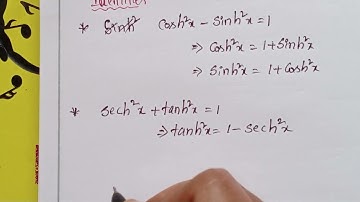 Identities
* Sinh² Cosh²x - Sinh²x = 1
⇒ Cosh²x = 1+Sinh²x
⇒ Sinh²x = 1+Cosh²x
* Sech²x + tanh²x = 1
⇒ tanh²x = 1 - Sech²x